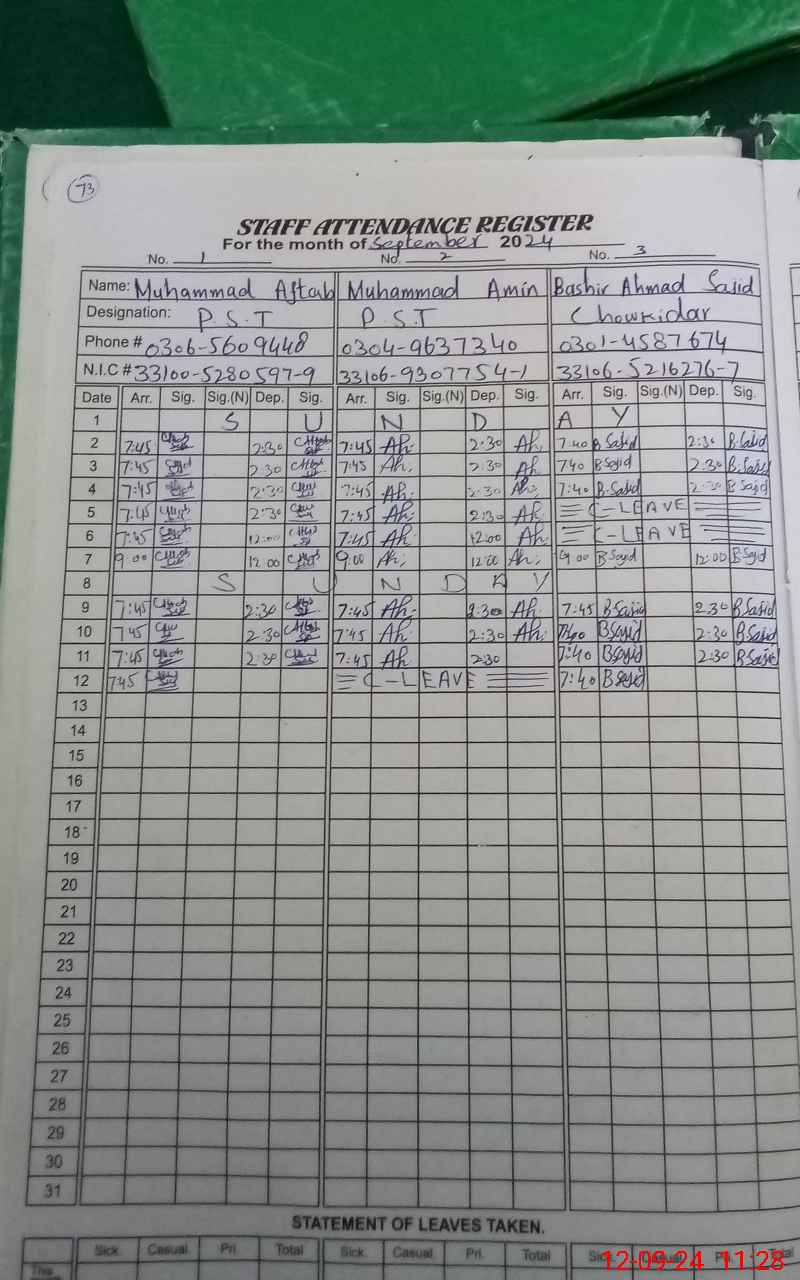 73
STAFF ATTENDANCE REGISTER
For the month of September 2024
No. 1 No. 2 No. 3
Name: Muhammad Aftab Muhammad Amin Bashir Ahmad Sajid
Designation: P.S.T P.S.T Chowkidar
Phone # 0306-5609448 0304-9637340 0301-4587674
N.I.C # 33100-5280597-9 33106-9307754-1 33106-5216276-7
Date Arr. Sig. Sig.(N) Dep. Sig. Arr. Sig. Sig.(N) Dep. Sig. Arr. Sig. Sig.(N) Dep. Sig.
1 S U N D A Y
2 7:45 2:30 7:45 Ah. 2:30 Ah. 7:40 B Sajid 2:30 B.Sajid
3 7:45 2:30 7:45 Ah. 2:30 Ah 740 B Sajid 2.30 B.Sajid
4 7:45 2:30 7:45 Ah. 2:30 Ah. 7:40 B-Sajid 2:30 B Sajid
5 7:45 2:30 7:45 Ah. 2:30 Ah C-LEAVE
6 7:45 12:00 7:45 Ah. 12:00 Ah. C-LEAVE
7 9:00 12:00 9:00 Ah; 12:00 Ah; 9:00 B Sajid 12:00 B Sajid
8 S U N D A Y
9 7:45 2:30 7:45 Ah. 2:30 Ah. 7:45 B Sajid 2:30 B Sajid
10 7:45 2:30 7:45 Ah. 2:30 Ah. 7:40 B Sajid 2:30 B.Sajid
11 7:45 2:30 7:45 Ah 2:30 7:40 B Sajid 2:30 B Sajid
12 7:45 C-LEAVE 7:40 B Sajid
13
14
15
16
17
18
19
20
21
22
23
24
25
26
27
28
29
30
31
STATEMENT OF LEAVES TAKEN.
Sick. Casual Pri. Total Sick. Casual Pri. Total Sick. Casual Pri. Total
This
12-09-24 11:28